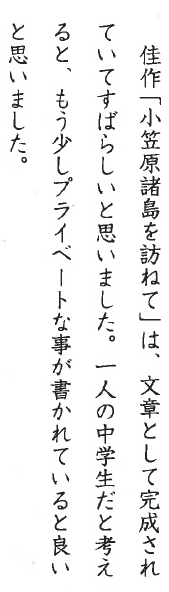 佳作「小笠原諸島を訪ねて」は、文章として完成され
ていてすばらしいと思いました。一人の中学生だと考え
ると、もう少しプライベートな事が書かれていると良い
と思いました。